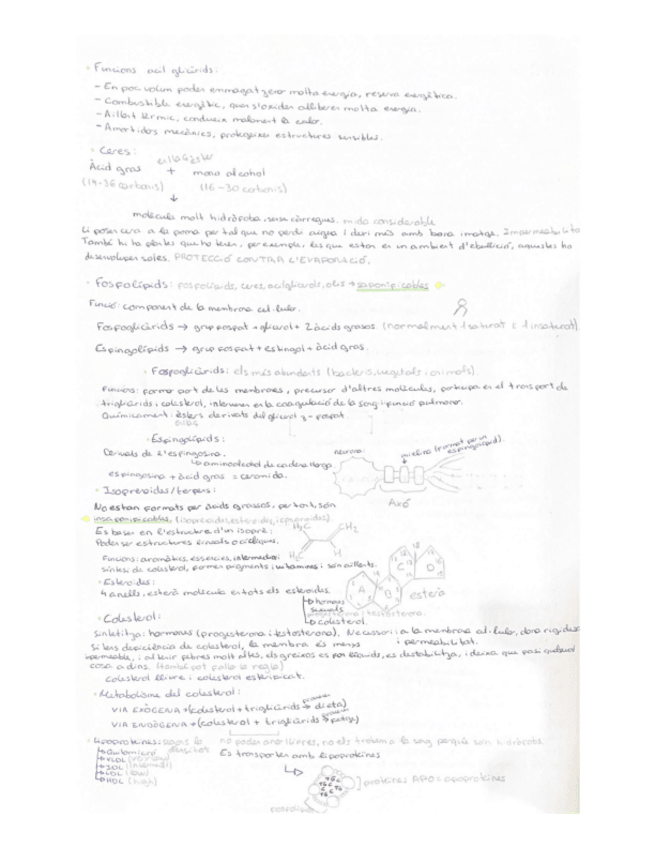 · Funcions acil glicèrids:
- En poc volum poden emmagatzemar molta energia, reserva energètica.
- Combustible energètic, quan s'oxiden alliberen molta energia.
- Aïllant tèrmic, condueix malament la calor.
- Amortidos mecànics, protegeixen estructures sensibles.
· Ceres:
enllaç èster
Àcid gras + mono alcohol
(14-36 carbonis) (16-30 carbonis)
↓
molècula molt hidròfoba, sense càrregues. mida considerable
li posen cera a la poma per tal que no perdi aigua i duri més amb bona imatge. Impermeabilita
També hi ha plantes que ho tenen, per exemple, les que estan en un ambient d'ebullició, aquestes ho
desenvolupen soles. PROTECCIÓ CONTRA L'EVAPORACIÓ.
· Fosfolípids: fosfolípids, ceres, acilglicerols, olis → saponificables
Funció: component de la membrana cel·lular.
Fosfoglicèrids → grup fosfat + glicerol + 2 àcids grasos. (normalment 1 saturat i 1 insaturat)
Espingolípids → grup fosfat + esfingol + àcid gras.
· Fosfoglicèrids: els més abundants (bacteris, vegetals i animals).
Funcions: formar part de les membranes, precursor d'altres molècules, participa en el transport de
triglicèrids i colesterol, intervenen en la coagulació de la sang i funció pulmonar.
Químicament: èsters derivats del glicerol 3-fosfat.
· Espingolípids:
Derivats de l'espingosina.
↳ aminoalcohol de cadena llarga
espingosina + àcid gras = ceramida.
neurona
mielina (format per un espingolípid).
Axó
· Isoprenoides/terpens:
No estan formats per àcids grassos, per tant, són
insaponificables. (isoprenoides, esteroides,
Es basen en l'estructura d'un isoprè:
Poden ser estructures lineals o cícliques.
H₃C CH₂
H₂C H
Funcions: aromàtics, essències, intermedi a
síntesi de colesterol, formen pigments i vitamines i són aïllants.
· Esteroides:
4 anells, esterà molècula en tots els esteroides.
↳ hormones sexuals
progesterona i testosterona.
↳ colesterol.
A B C D
esterà
· Colesterol:
Sintetitza: hormones (progesterona i testosterona). Necessari a la membrana cel·lular, dona rigidesa
i permeabilitat.
Si tens deficiència de colesterol, la membrana és menys
impermeable, i al tenir febres molt altes, els greixos es fan líquids, es desestabilitza, i deixa que passi qualsevol
cosa a dins. (també pot fallar la regla)
Colesterol lliure i colesterol esterificat.
· Metabolisme del colesterol:
VIA EXÒGENA → (colesterol + triglicèrids → dieta)
VIA ENDÒGENA → (colesterol + triglicèrids → fetge)
· Lipoproteïnes: segons la densitat
no poden anar lliures, no els trobem a la sang perquè són hidròfobs.
Es transporten amb lipoproteïnes
↳ Quilomicró
↳ VLDL (very low)
↳ IDL (intermedi)
↳ LDL (low)
↳ HDL (high)
proteïnes APO = apoproteïnes